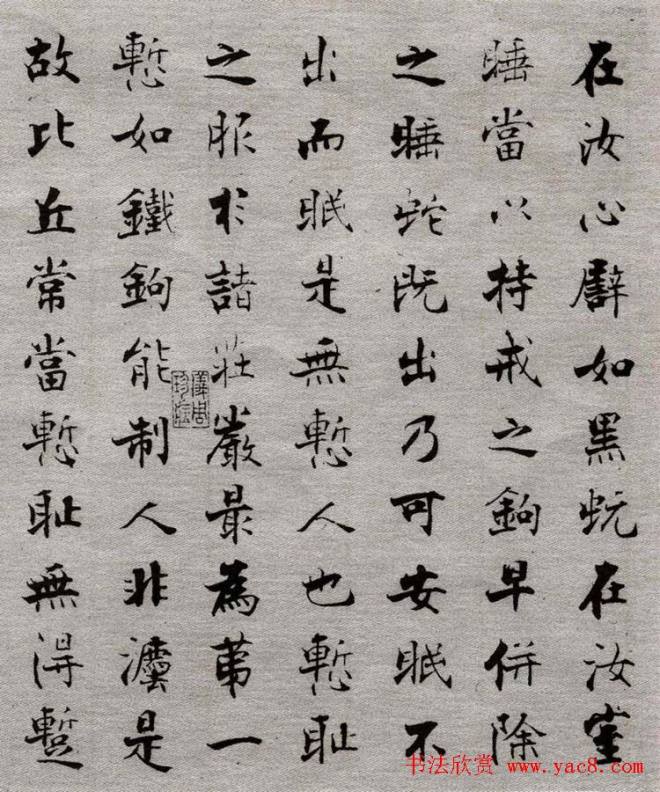 在汝心譬如黑蚖在汝室
睡當以持戒之鉤早併除
之睡蛇既出乃可安眠不
出而眠是無慙人也慙耻
之服於諸莊嚴最為苐一
慙如鐵鉤能制人非灋是
故比丘常當慙耻無淂蹔
儀周珍藏
书法欣赏 www.yac8.com